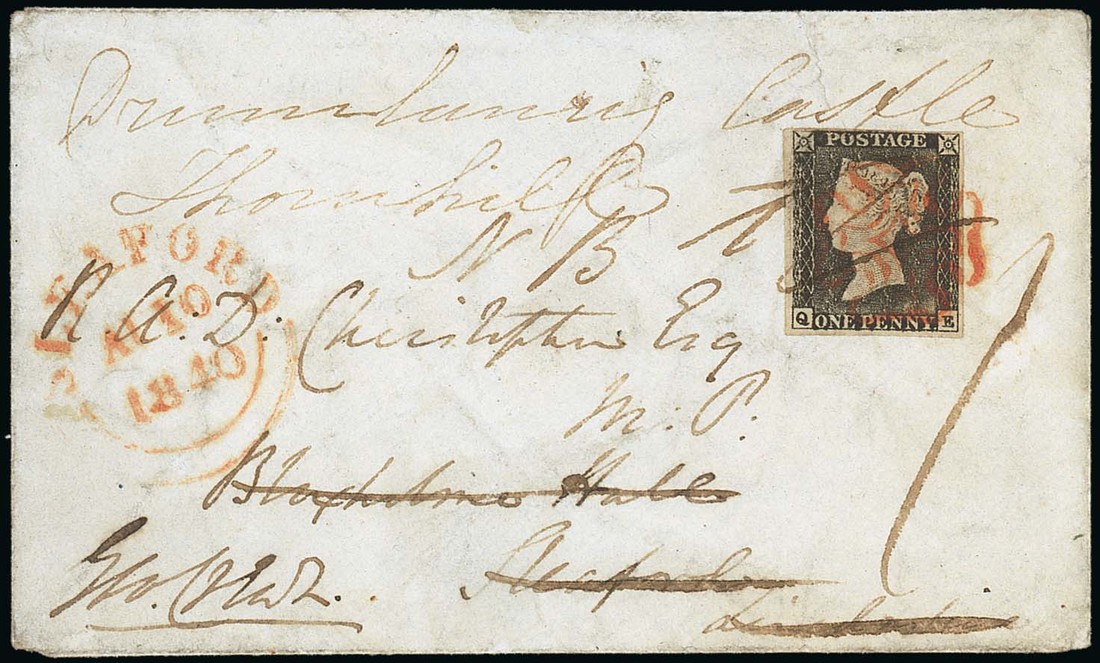 Drumlanrig Castle
Thornhill
N B
POSTAGE
Q ONE PENNY E
SLEAFORD
AU 10
1840
R. A. D. Christopher Esq
M. P.
Bloxholme Hall
Sleaford
Lincolnshire
Geo.
1